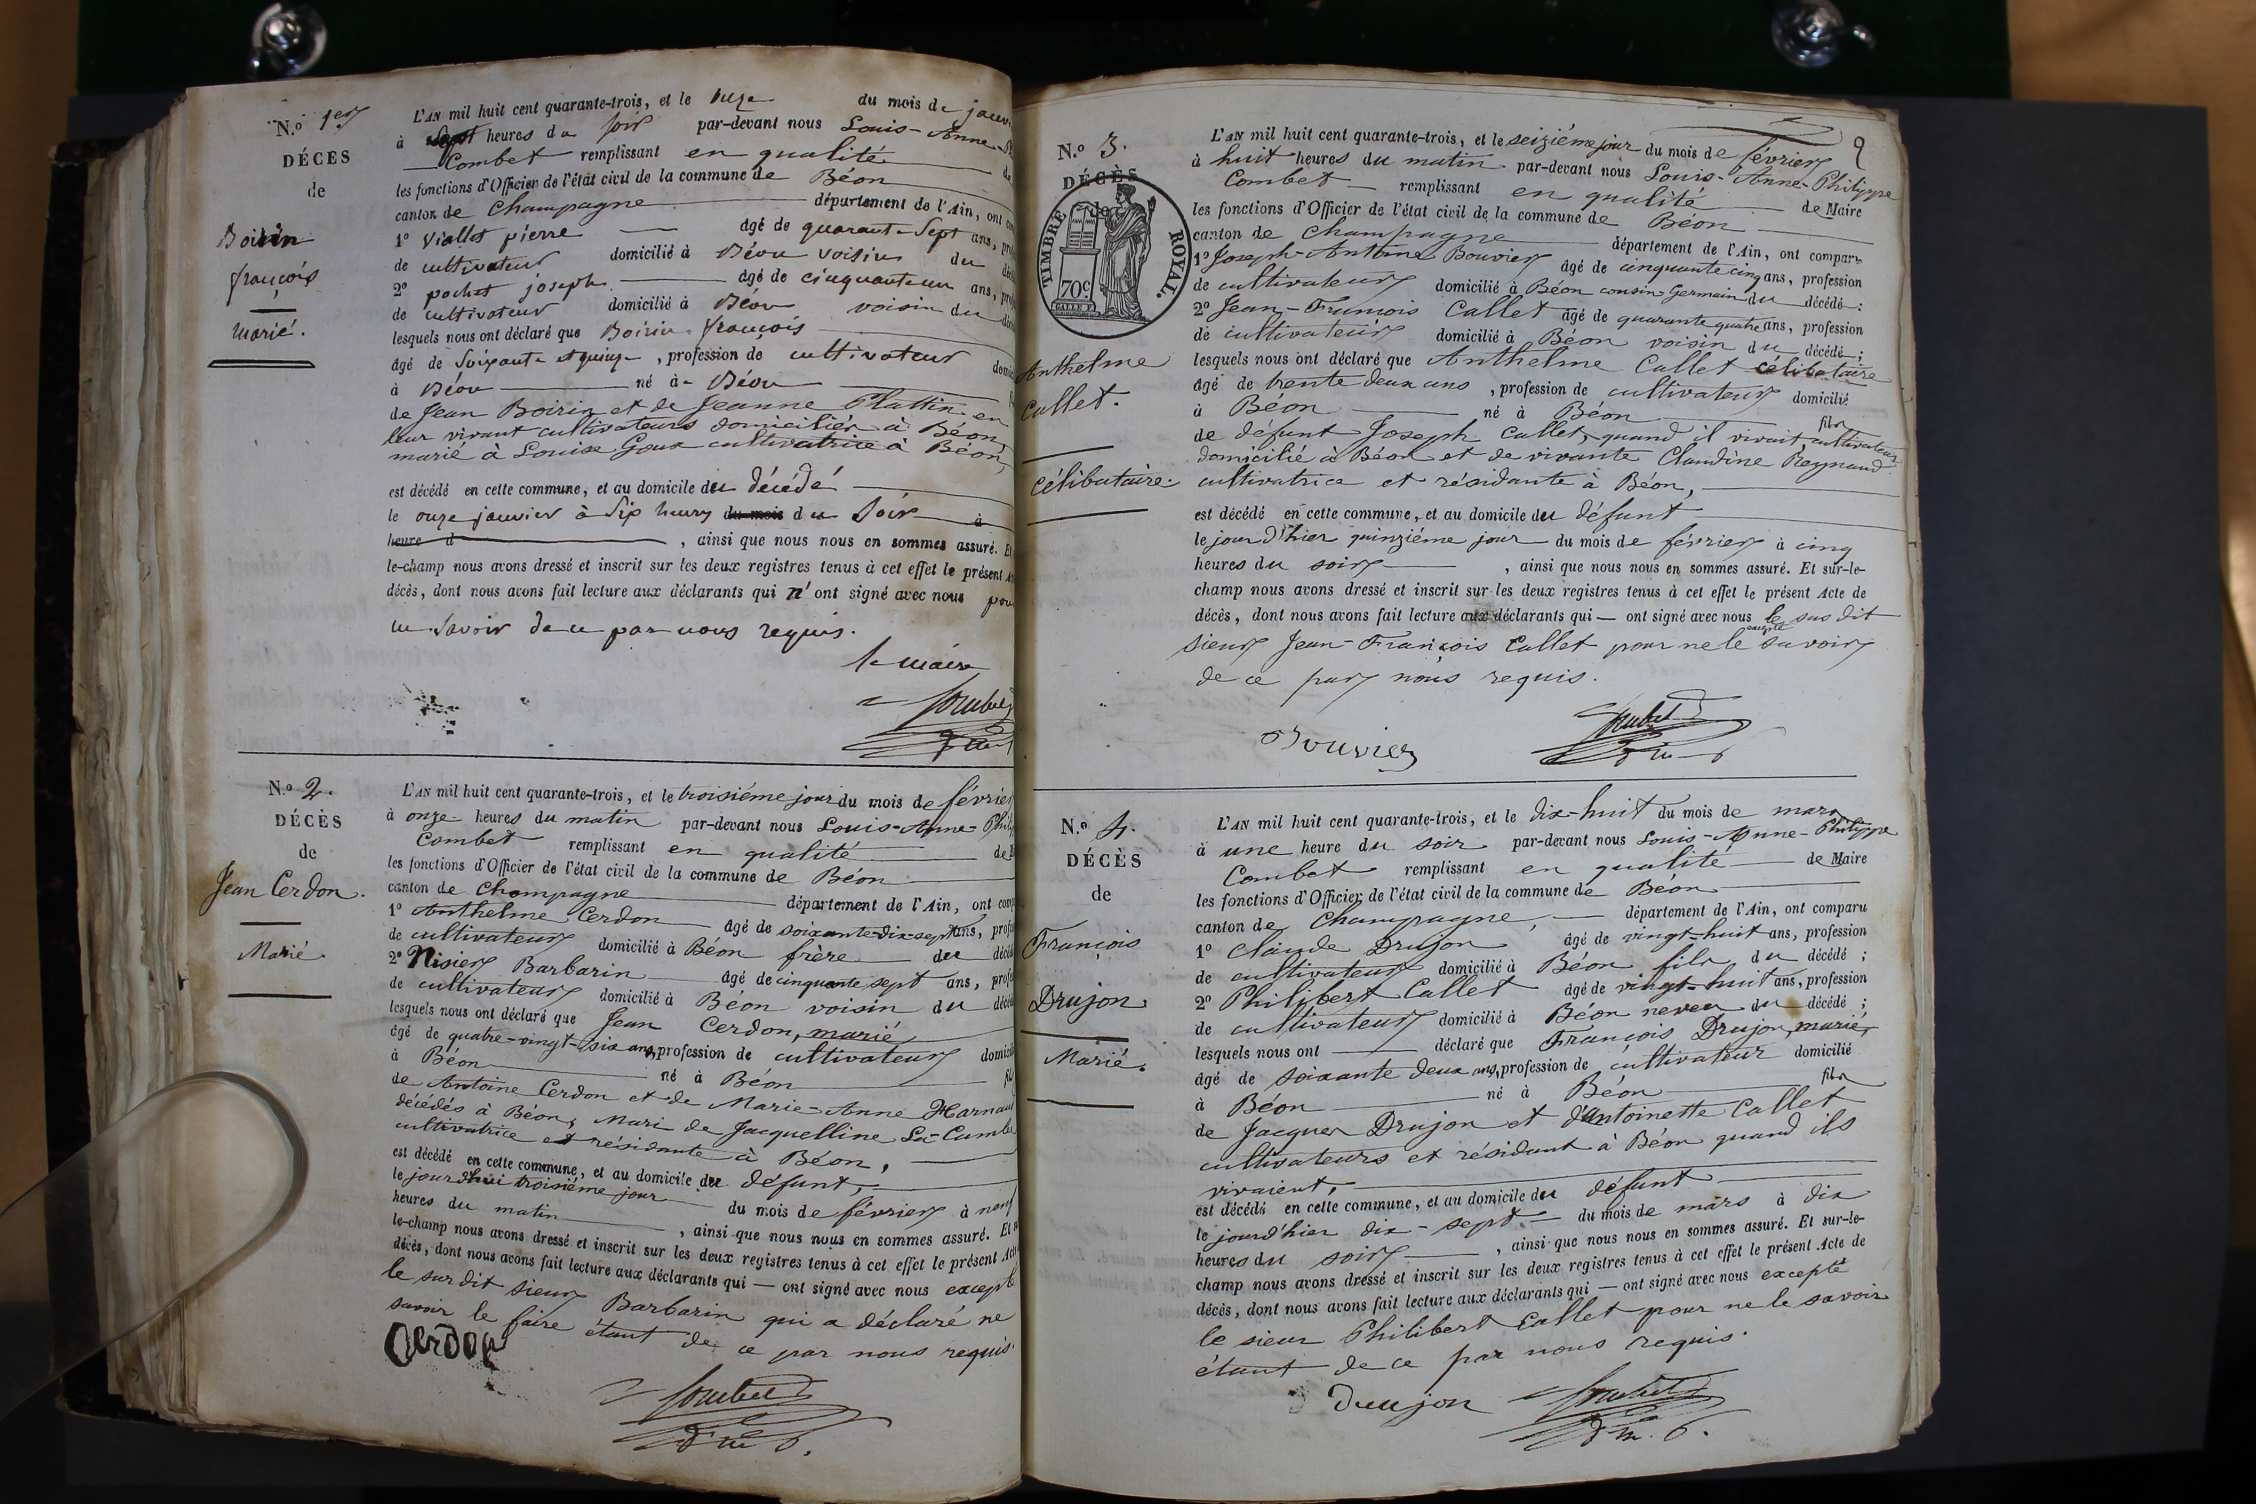 N.º 1er
DÉCÈS
de
Boirin
françois
marié.
L'AN mil huit cent quarante-trois, et le onze du mois de janv
à sept heures du soir par-devant nous Louis-Anne-
Combet remplissant en qualité de
les fonctions d'Officier de l'état civil de la commune de Béon
canton de Champagne département de l'Ain, ont
1º Viallet pierre âgé de quarant-sept ans,
de cultivateur domicilié à Béon voisin du
2º pochet joseph âgé de cinquante un ans,
de cultivateur domicilié à Béon voisin du
lesquels nous ont déclaré que Boirin françois
âgé de soixante et quinze, profession de cultivateur
à Béon né à Béon
de Jean Boirin et de Jeanne Plattin en
leur vivant cultivateurs domiciliés à Béon,
marié à Louise Goux cultivatrice à Béon,
est décédé en cette commune, et au domicile du décédé
le onze janvier à six heures du mois du soir à
heure d , ainsi que nous nous en sommes assuré. Et
le-champ nous avons dressé et inscrit sur les deux registres tenus à cet effet le présent
décès, dont nous avons fait lecture aux déclarants qui n'ont signé avec nous pour
ne savoir de ce par nous requis.
le maire
Combet
N.º 2.
DÉCÈS
de
Jean Cerdon.
Marié.
L'AN mil huit cent quarante-trois, et le troisième jour du mois de février
à onze heures du matin par-devant nous Louis-Anne-Phili
Combet remplissant en qualité de
les fonctions d'Officier de l'état civil de la commune de Béon
canton de Champagne département de l'Ain, ont comp
1º Anthelme Cerdon âgé de soixante-dix-sept ans, profe
de cultivateur domicilié à Béon frère du décédé
2º Nisier Barbarin âgé de cinquante sept ans, profe
de cultivateur domicilié à Béon voisin du décédé
lesquels nous ont déclaré que Jean Cerdon, marié
âgé de quatre-vingt-six ans, profession de cultivateur domicili
à Béon né à Béon fils
de Antoine Cerdon et de Marie-Anne Harnaud
décédés à Béon, Mari de Jacquelline La-Combe
cultivatrice et résidante à Béon,
est décédé en cette commune, et au domicile du défunt,
le jourd'hui troisième jour du mois de février à neuf
heures du matin , ainsi que nous nous en sommes assuré. Et
le-champ nous avons dressé et inscrit sur les deux registres tenus à cet effet le présent Acte
décès, dont nous avons fait lecture aux déclarants qui — ont signé avec nous excepté
le sur dit sieur Barbarin qui a déclaré ne
savoir le faire étant de ce par nous requis.
Cerdon
Combet
N.º 3.
DÉCÈS
de
TIMBRE ROYAL.
70c
Anthelme
Callet.
Célibataire.
2
L'AN mil huit cent quarante-trois, et le seizième jour du mois de février
à huit heures du matin par-devant nous Louis-Anne-Philippe
Combet remplissant en qualité de Maire
les fonctions d'Officier de l'état civil de la commune de Béon
canton de Champagne département de l'Ain, ont comparu
1º Joseph-Antoine Bouvier âgé de cinquante cinq ans, profession
de cultivateur domicilié à Béon cousin Germain du décédé ;
2º Jean-Francois Callet âgé de quarante quatre ans, profession
de cultivateur domicilié à Béon voisin du décédé ;
lesquels nous ont déclaré que Anthelme Callet célibataire
âgé de trente deux ans , profession de cultivateur domicilié
à Béon né à Béon fils
de défunt Joseph Callet, quand il vivait cultivateur
domicilié à Béon et de vivante Claudine Reynaud
cultivatrice et résidante à Béon,
est décédé en cette commune, et au domicile du défunt
le jour d'hier quinzième jour du mois de février à cinq
heures du soir , ainsi que nous nous en sommes assuré. Et sur-le-
champ nous avons dressé et inscrit sur les deux registres tenus à cet effet le présent Acte de
décès, dont nous avons fait lecture aux déclarants qui — ont signé avec nous excepté le sus dit
sieur Jean-François Callet pour ne le savoir
de ce par nous requis.
Bouvier
Combet
N.º 4.
DÉCÈS
de
François
Drujon
Marié.
L'AN mil huit cent quarante-trois, et le dix-huit du mois de mars
à une heure du soir par-devant nous Louis-Anne-Philippe
Combet remplissant en qualité de Maire
les fonctions d'Officier de l'état civil de la commune de Béon
canton de Champagne, département de l'Ain, ont comparu
1º Claude Drujon âgé de vingt-huit ans, profession
de cultivateur domicilié à Béon fils du décédé ;
2º Philibert Callet âgé de vingt-huit ans, profession
de cultivateur domicilié à Béon neveu du décédé ;
lesquels nous ont déclaré que François Drujon, marié,
âgé de soixante deux ans, profession de cultivateur domicilié
à Béon né à Béon fils
de Jacques Drujon et d'Antoinette Callet
cultivateurs et résidant à Béon quand ils
vivaient,
est décédé en cette commune, et au domicile du défunt
le jourd'hier dix-sept du mois de mars à dix
heures du soir , ainsi que nous nous en sommes assuré. Et sur-le-
champ nous avons dressé et inscrit sur les deux registres tenus à cet effet le présent Acte de
décès, dont nous avons fait lecture aux déclarants qui — ont signé avec nous excepté
le sieur Philibert Callet pour ne le savoir
étant de ce par nous requis.
Drujon
Combet